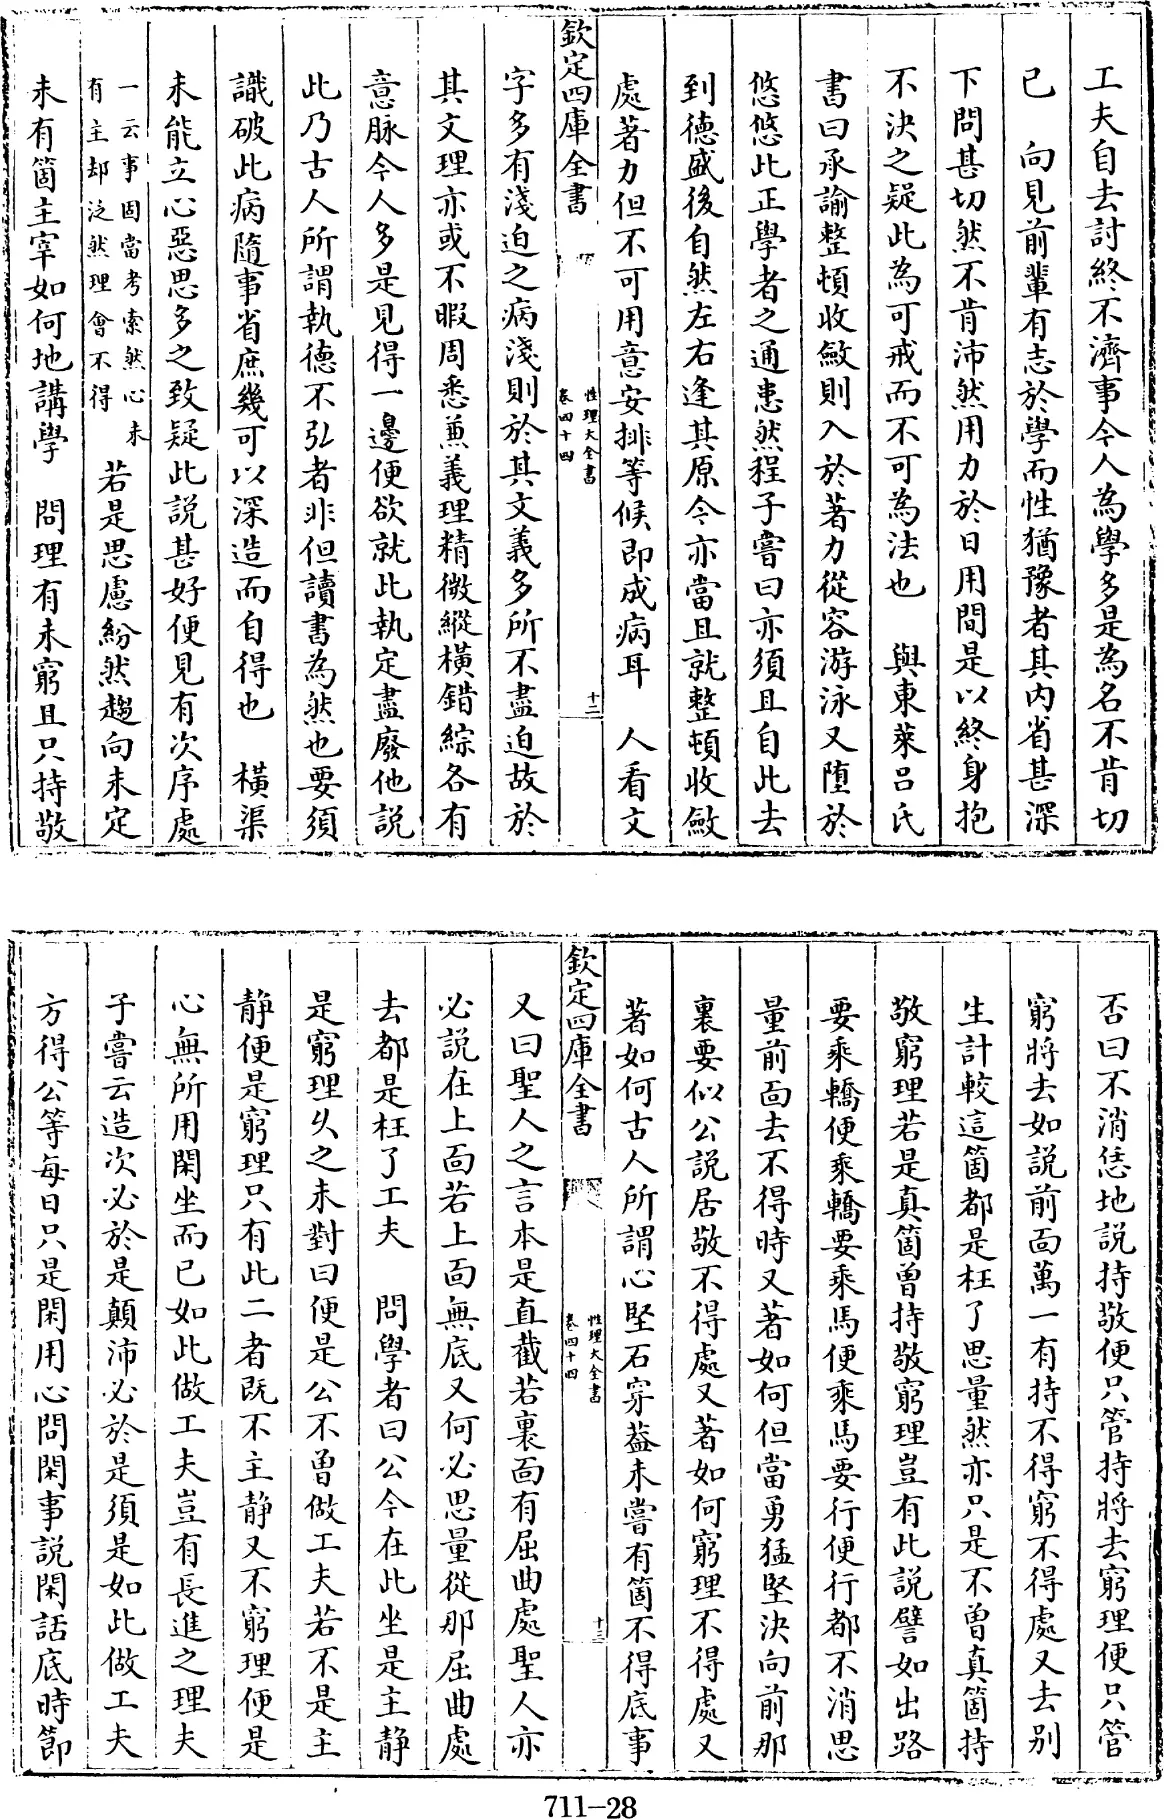 工夫自去討終不濟事今人為學多是為名不肯切
已　向見前輩有志於學而性猶豫者其内省甚深
下問甚切然不肯沛然用力於日用間是以終身抱
不決之疑此為可戒而不可為法也　與東萊呂氏
書曰承諭整頓收斂則入於著力從容游泳又墮於
悠悠此正學者之通患然程子嘗曰亦須且自此去
到德盛後自然左右逢其原今亦當且就整頓收斂
處著力但不可用意安排等候即成病耳　人看文
欽定四庫全書
性理大全書
卷四十四
十二
字多有淺迫之病淺則於其文義多所不盡迫故於
其文理亦或不暇周悉兼義理精微縱橫錯綜各有
意脉今人多是見得一邊便欲就此執定盡廢他説
此乃古人所謂執德不弘者非但讀書為然也要須
識破此病隨事省庶幾可以深造而自得也　橫渠
未能立心惡思多之致疑此説甚好便見有次序處
一云事固當考索然心未
有主却泛然理會不得
若是思慮紛然趨向未定
未有箇主宰如何地講學　問理有未窮且只持敬
否曰不消恁地説持敬便只管持將去窮理便只管
窮將去如説前面萬一有持不得窮不得處又去别
生計較這箇都是枉了思量然亦只是不曾真箇持
敬窮理若是真箇曾持敬窮理豈有此説譬如出路
要乘轎便乘轎要乘馬便乘馬要行便行都不消思
量前面去不得時又著如何但當勇猛堅決向前那
裏要似公説居敬不得處又著如何窮理不得處又
著如何古人所謂心堅石穿葢未嘗有箇不得底事
欽定四庫全書
性理大全書
卷四十四
十三
又曰聖人之言本是直截若裏面有屈曲處聖人亦
必説在上面若上面無底又何必思量從那屈曲處
去都是枉了工夫　問學者曰公今在此坐是主静
是窮理乆之未對曰便是公不曾做工夫若不是主
静便是窮理只有此二者既不主静又不窮理便是
心無所用閑坐而已如此做工夫豈有長進之理夫
子嘗云造次必於是顛沛必於是須是如此做工夫
方得公等每日只是閑用心問閑事説閑話底時節
711-28